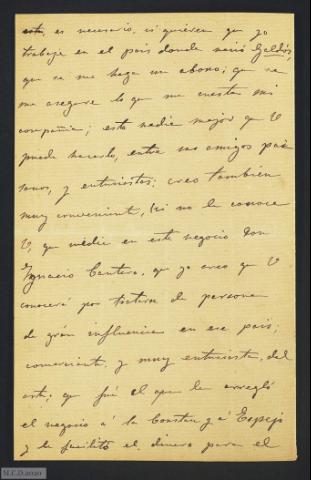 esto, es necesario, si quieren que yo
trabaje en el pais donde nació Galdós,
que se me haga un abono; que se
me asegure lo que me cuesta mi
compañia; esto nadie mejor que V
puede hacerlo, entre sus amigos pai
sanos, y enturistas; creo tambien
muy conveniente, (si no le conoce
V, que médie en este negocio Don
Ygnacio Cantera, que yo creo que V
conocerá por tratarse de persona
de grán influencia en ese pais;
comerciante, y muy enturista, del
arte; que fué el que le arregló
el negocio á la Constan y á Espejo
y le facilitó el dinero para el
M.C.D.2020